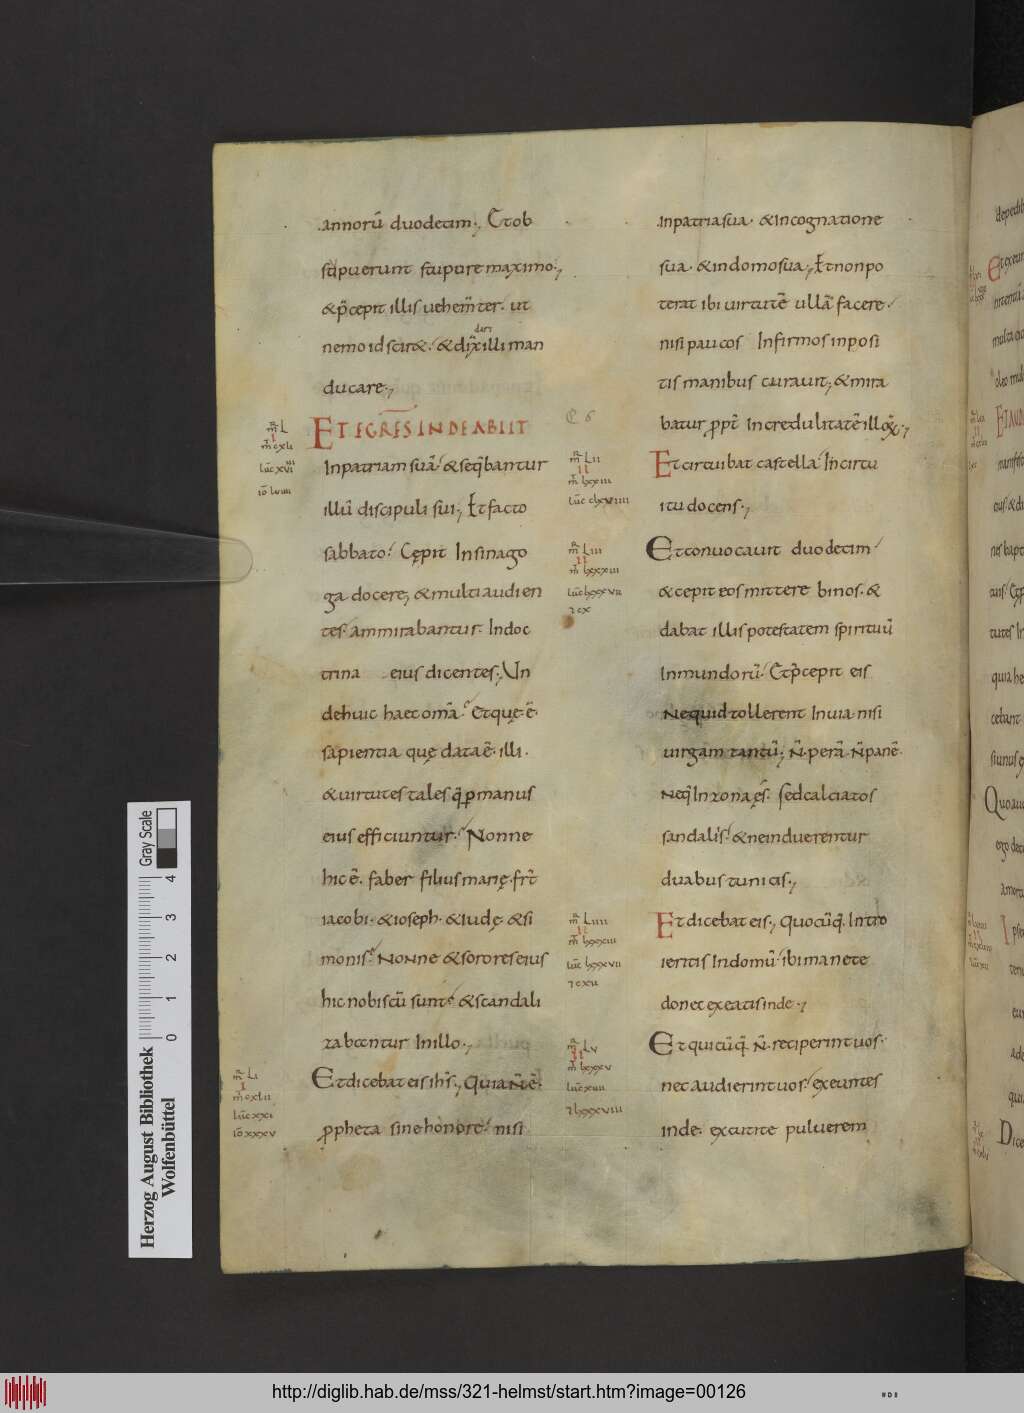 annorū duodecim·, Et ob
stipuerunt stupore maximo·,
& p̄cepit illis uehem̄ter· ut
nemo id scir&· & dix̄ illi man
dari
ducare·,
ET EGRESS INDE ABIIT
In patriam suā· & seq̄bantur
illū discipuli sui·, Et facto
sabbato· Cępit In sinago
ga docere, & multi audien
tes· ammirabantur· In doc
trina eius dicentes·, Un
de huic haec om̄a· Et quę ē·
sapientia quę data ē· illi·
& uirtutes tales q̄ ꝑ manus
eius efficiuntur· Nonne
hic ē· faber filius marię· fr̄t
iacobi· & ioseph· & iudę· & si
monis· Nonne & sorores eius
hic nobiscū sunt· & scandali
zabantur In illo·,
Et dicebat eis ih̄s·, Quia N̄ ē·
ꝓpheta sine honore· nisi
m̄ L
I
m̄ cxli
luc̄ xviiii
io̅ lviiii
m̄ Li
I
m̄ cxlii
luc̄ xxi
io̅ xxxv
C 6
In patria sua· & In cognatione
sua· & in domo sua·, Et non po
terat ibi uirtutē ullā facere·
nisi paucos Infirmos inposi
tis manibus curauit·, & mira
batur ꝓpt̄ Incredulitatē illoꝝ·,
Et circuibat castella In circu
itu docens·,
Et conuocauit duodecim
& cepit eos mittere binos· &
dabat illis potestatem spirituū
Inmundorū· Et p̄cepit eis
Ne quid tollerent In uia nisi
uirgam tantū·, N̄· perā· N̄ panē·
Neq̄ In zona ęs· sed calciatos
sandalis· & ne induerentur
duabus tunicis·,
Et dicebat eis·, quocūq̄· Intro
ieritis In domū· ibi manete
donec exeatis inde·,
Et quicūq̄ N̄· receperint uos·
nec audierint uos· exeuntes
inde· excutite puluerem
m̄ Lii
II
m̄ lxxiii
luc̄ clxviiii
m̄ Liii
II
m̄ lxxxiii
luc̄ lxxxvii
⁊ cx
m̄ Liiii
II
m̄ lxxxiii
luc̄ lxxxvii
⁊ cxii
m̄ Lv
II
m̄ lxxxv
luc̄ cxiii
⁊ lxxxviii
Gray Scale
0 1 2 3 4
Herzog August Bibliothek
Wolfenbüttel
http://diglib.hab.de/mss/321-helmst/start.htm?image=00126